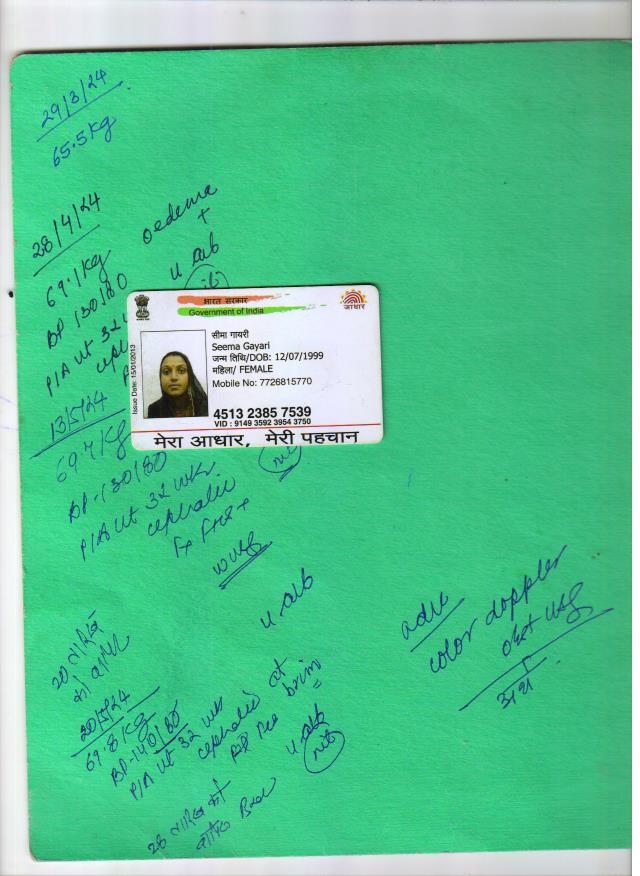 29/3/24
65.5kg
28/4/24
69.1kg
oedema
+
BP 130/80
u alb
P/A ut 32
ceph
भारत सरकार
Government of India
आधार
Issue Date: 15/01/2013
सीमा गायरी
Seema Gayari
जन्म तिथि/DOB: 12/07/1999
महिला/ FEMALE
Mobile No: 7726815770
4513 2385 7539
VID : 9149 3592 3954 3750
मेरा आधार, मेरी पहचान
13/5/24
69.7kg
BP-130/80
nil
P/A ut 32 wks
cephalic
u alb
adv
color doppler
obst usg
20 तारीख
को
20/5/24
69.8 kg
BP-140/80
P/A ut 32 wks
cephalic at
brim
u alb
nil
28 तारीख को